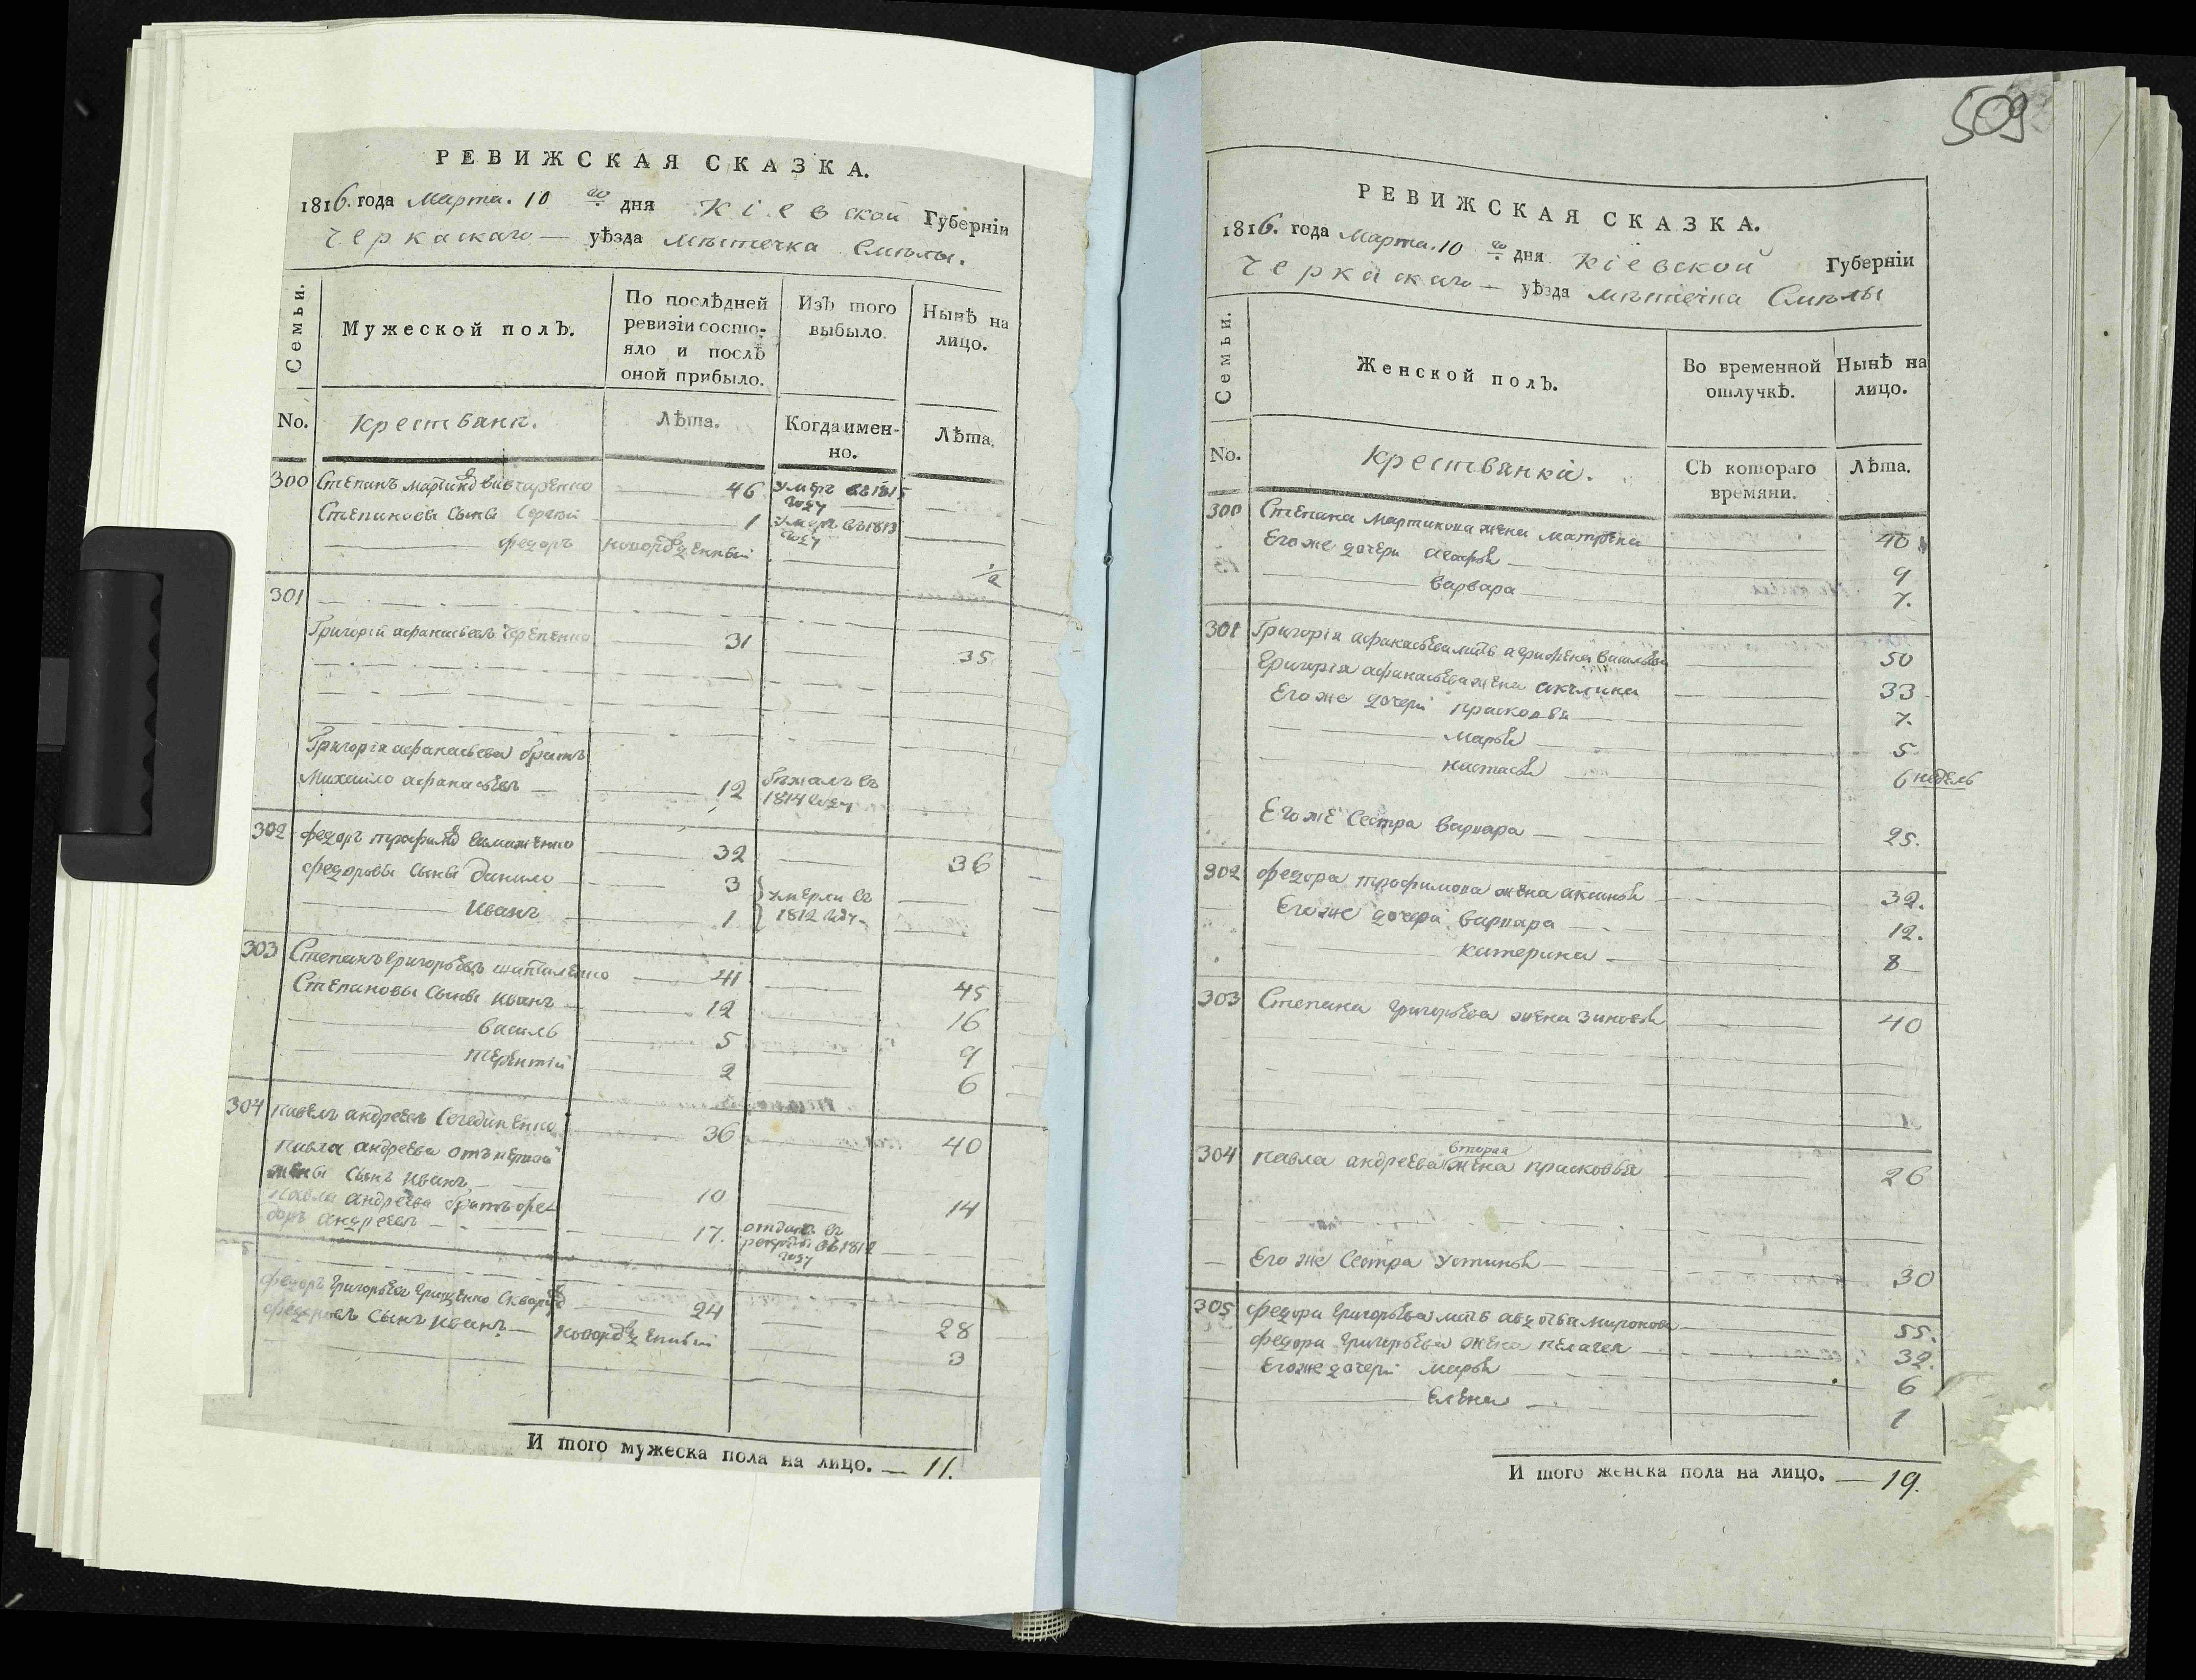 РЕВИЖСКАЯ СКАЗКА.
1816. года Марта. 10 го дня Кіевской Губерніи
Черкаскаго — уѣзда мѣстечка Смѣлы.
Семьи.
Мужеской полЪ.
По послѣдней ревизіи состояло и послѣ оной прибыло.
ИзЪ того выбыло.
Нынѣ на лицо.
No.
Крестьянъ.
Лѣта.
Когда именно.
Лѣта.
300 Степанъ Мартиновъ 46 умеръ въ 1815 году
Степановы сыны Сергѣй 1 умеръ въ 1813 году
федоръ новорожденный 1/2
301
Григорій афанасьевъ Черепенко 31 35
Григорія афанасьева братъ
Михайло афанасьевъ 12 бѣжалъ въ 1814 году
302 федоръ трофимовъ 32 36
федоровы сыны данило 3 умерли въ
Иванъ 1 1812 году
303 Степанъ Григорьевъ шаталенко 41 45
Степановы сыны Иванъ 12 16
Василь 5 9
терентій 2 6
304 павелъ андреевъ 36 40
павла андреева отъ первой
жены сынъ иванъ 10 14
павла андреева братъ фе-
доръ андреевъ 17. отданъ въ рекруты въ 1812 году
федоръ Григорьевъ Грищенко 24 28
федоровъ сынъ иванъ новорожденный 3
И того мужеска пола на лицо. — 11.
509
РЕВИЖСКАЯ СКАЗКА.
1816. года Марта. 10 го дня Кіевской Губерніи
Черкаскаго — уѣзда мѣстечка Смѣлы
Семьи.
Женской полЪ.
Во временной отлучкѣ.
НынѣЪ на лицо.
No.
Крестьянки.
СЪ котораго времяни.
Лѣта.
300 Степана Мартинова жена матрена 40
Его же дочери агафья 9
варвара 7.
301 Григорія афанасьева мать Васильева 50
Григорія афанасьева жена акилина 33
Его же дочери прасковья 7.
марья 5
настасья 6 недель
Его же Сестра варвара 25.
302 федора трофимова жена аксинья 32.
Его же дочери варвара 12.
катерина 8
303 Степана Григорьева жена зиновья 40
304 павла андреева вторая жена прасковья 26
Его же Сестра Устинья 30
305 федора Григорьева мать авдотья миронова 55.
федора Григорьева жена пелагея 32.
Его же дочери марья 6
елена 1
И того женска пола на лицо. — 19.